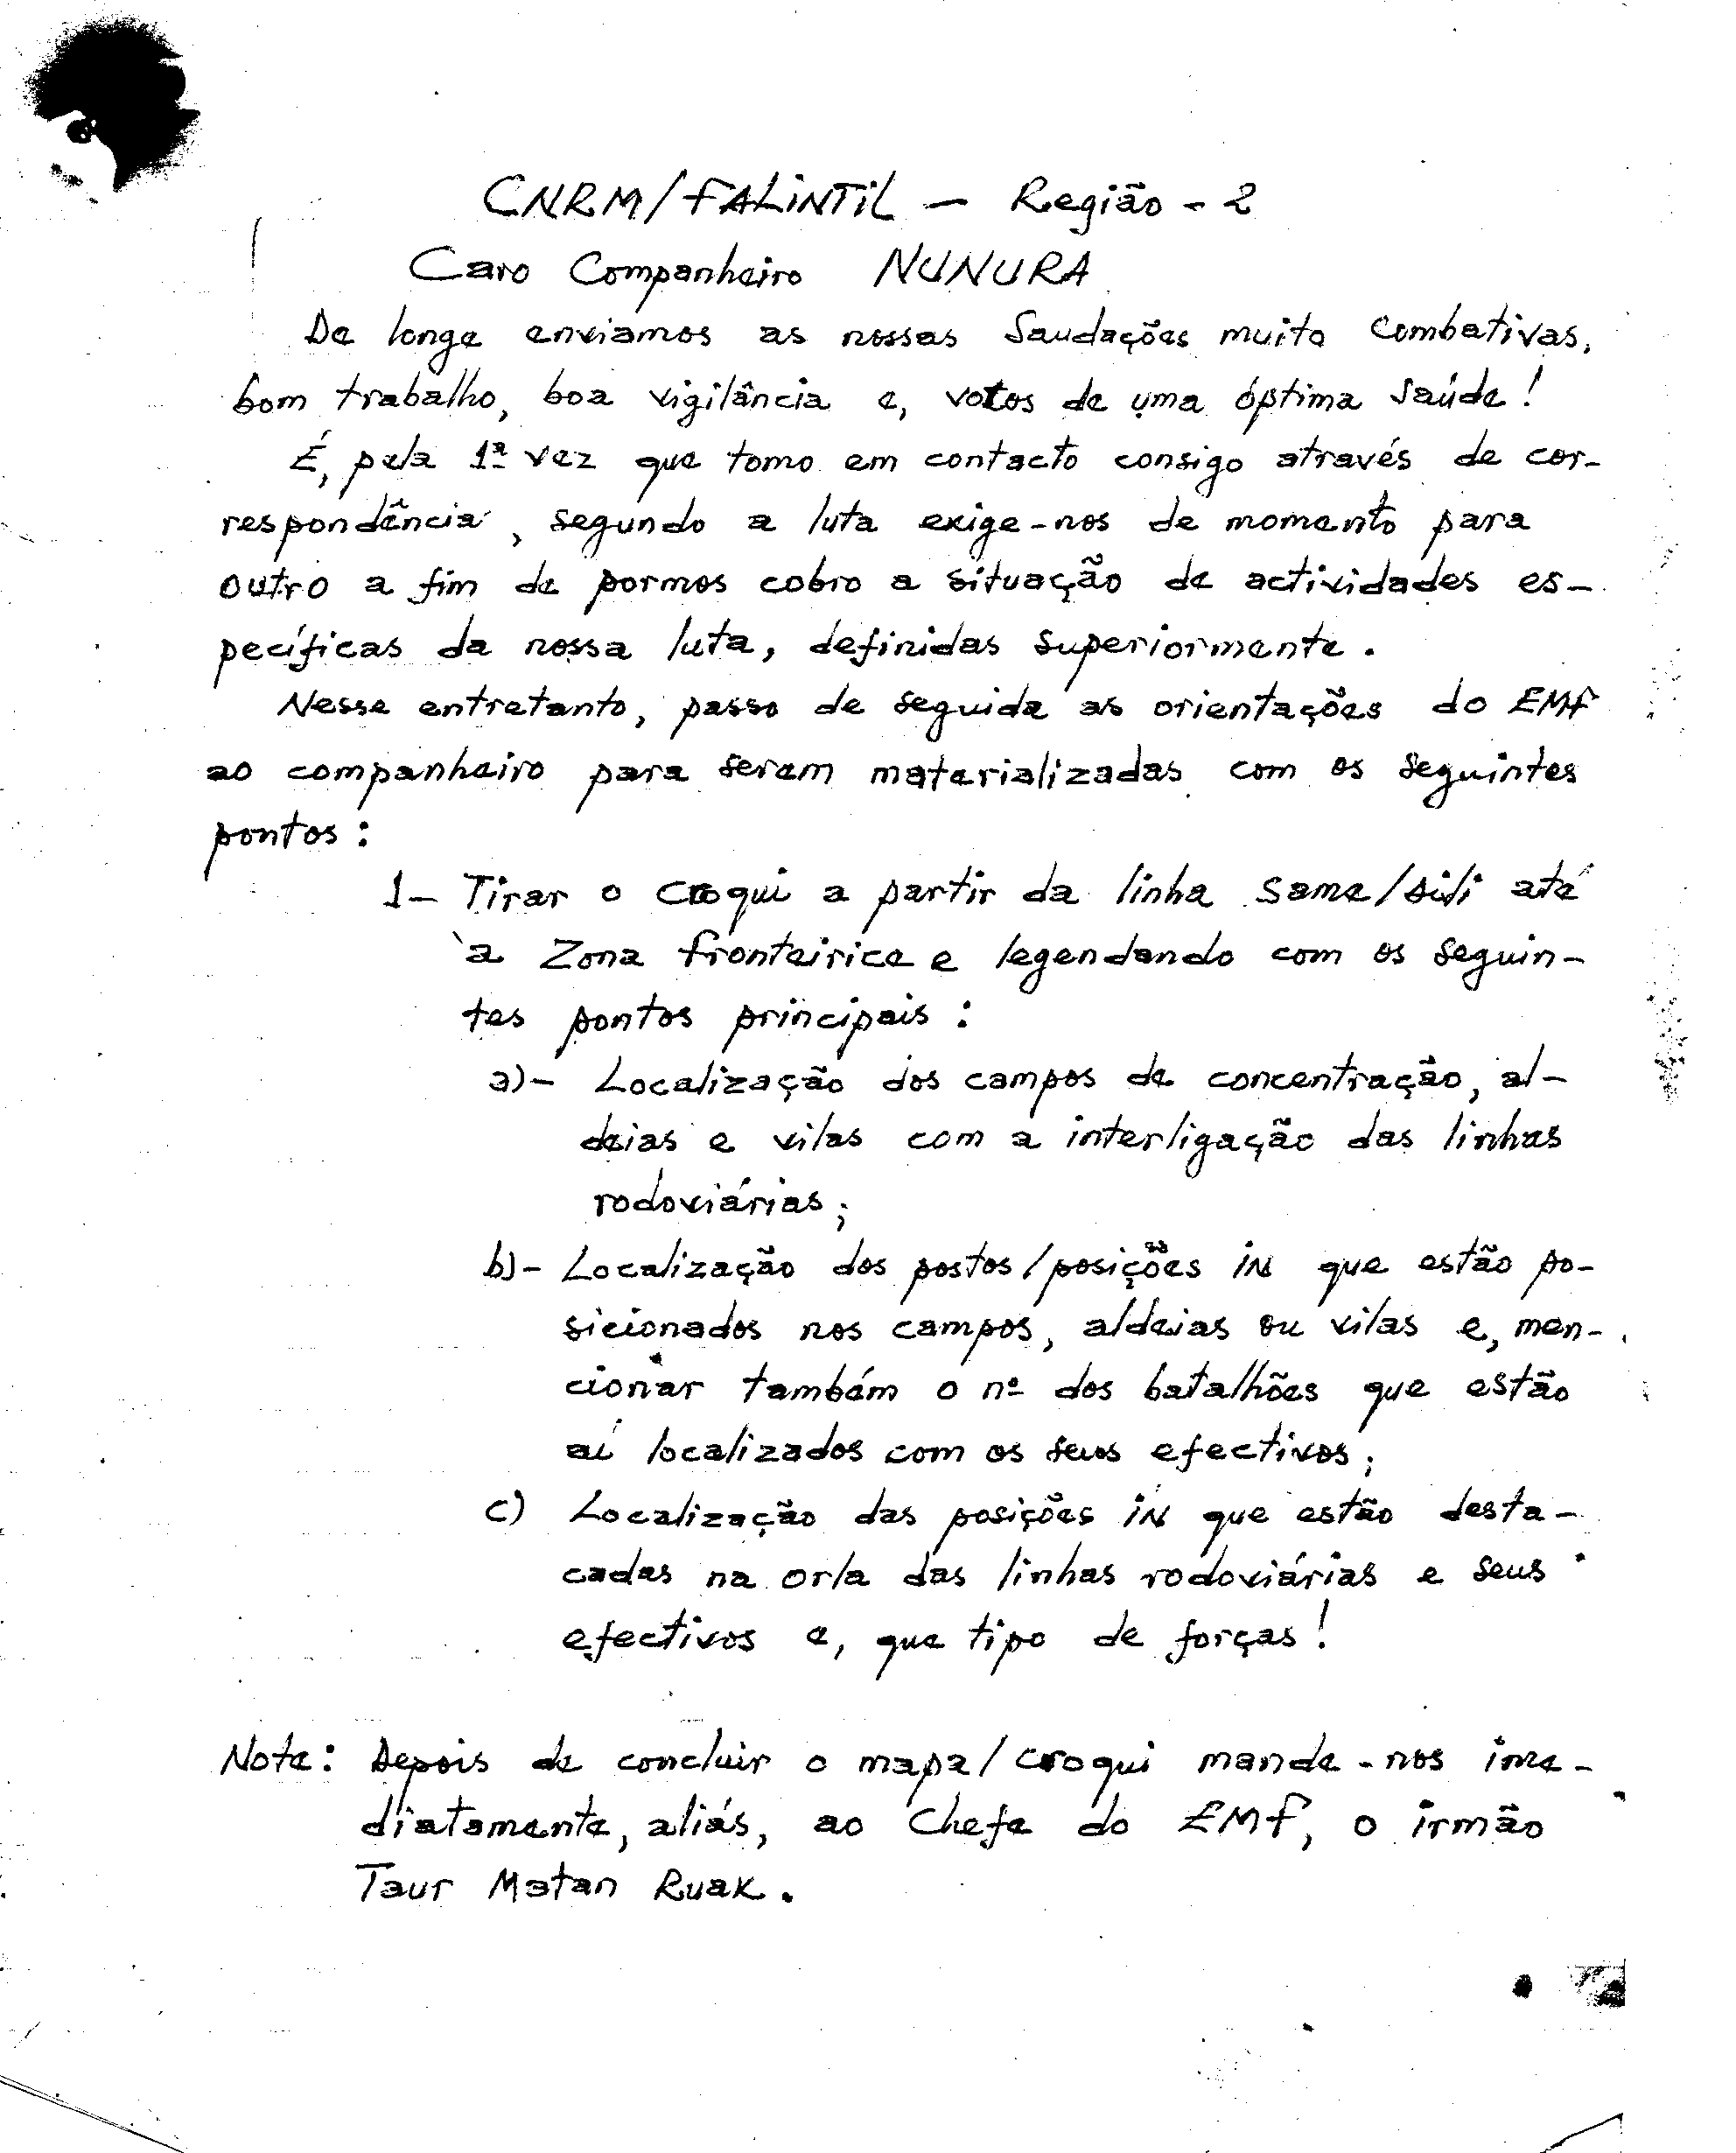 CNRM/FALINTIL – Região - 2
Caro Companheiro NUNURA
De longe enviamos as nossas Saudações muito combativas,
bom trabalho, boa vigilância e, votos de uma óptima saúde!
É, pela 1ª vez que tomo em contacto consigo através de cor-
respondência, segundo a luta exige-nos de momento para
outro a fim de pormos cobro a situação de actividades es-
pecíficas da nossa luta, definidas superiormente.
Nesse entretanto, passo de seguida as orientações do EMF
ao companheiro para serem materializadas com os seguintes
pontos:
1- Tirar o croqui a partir da linha Same/ até
à Zona fronteirica e legendando com os seguin-
tes pontos principais:
a)- Localização dos campos de concentração, al-
deias e vilas com a interligação das linhas
rodoviárias;
b)- Localização dos postos/posições iN que estão po-
sicionados nos campos, aldeias ou vilas e, men-
cionar também o nº dos batalhões que estão
aí localizados com os seus efectivos;
c) Localização das posições iN que estão desta-
cadas na orla das linhas rodoviárias e seus
efectivos e, que tipo de forças!
Note: Depois de concluir o mapa/croqui mande-nos ime-
diatamente, aliás, ao Chefe do EMF, o irmão
Taur Matan Ruak.